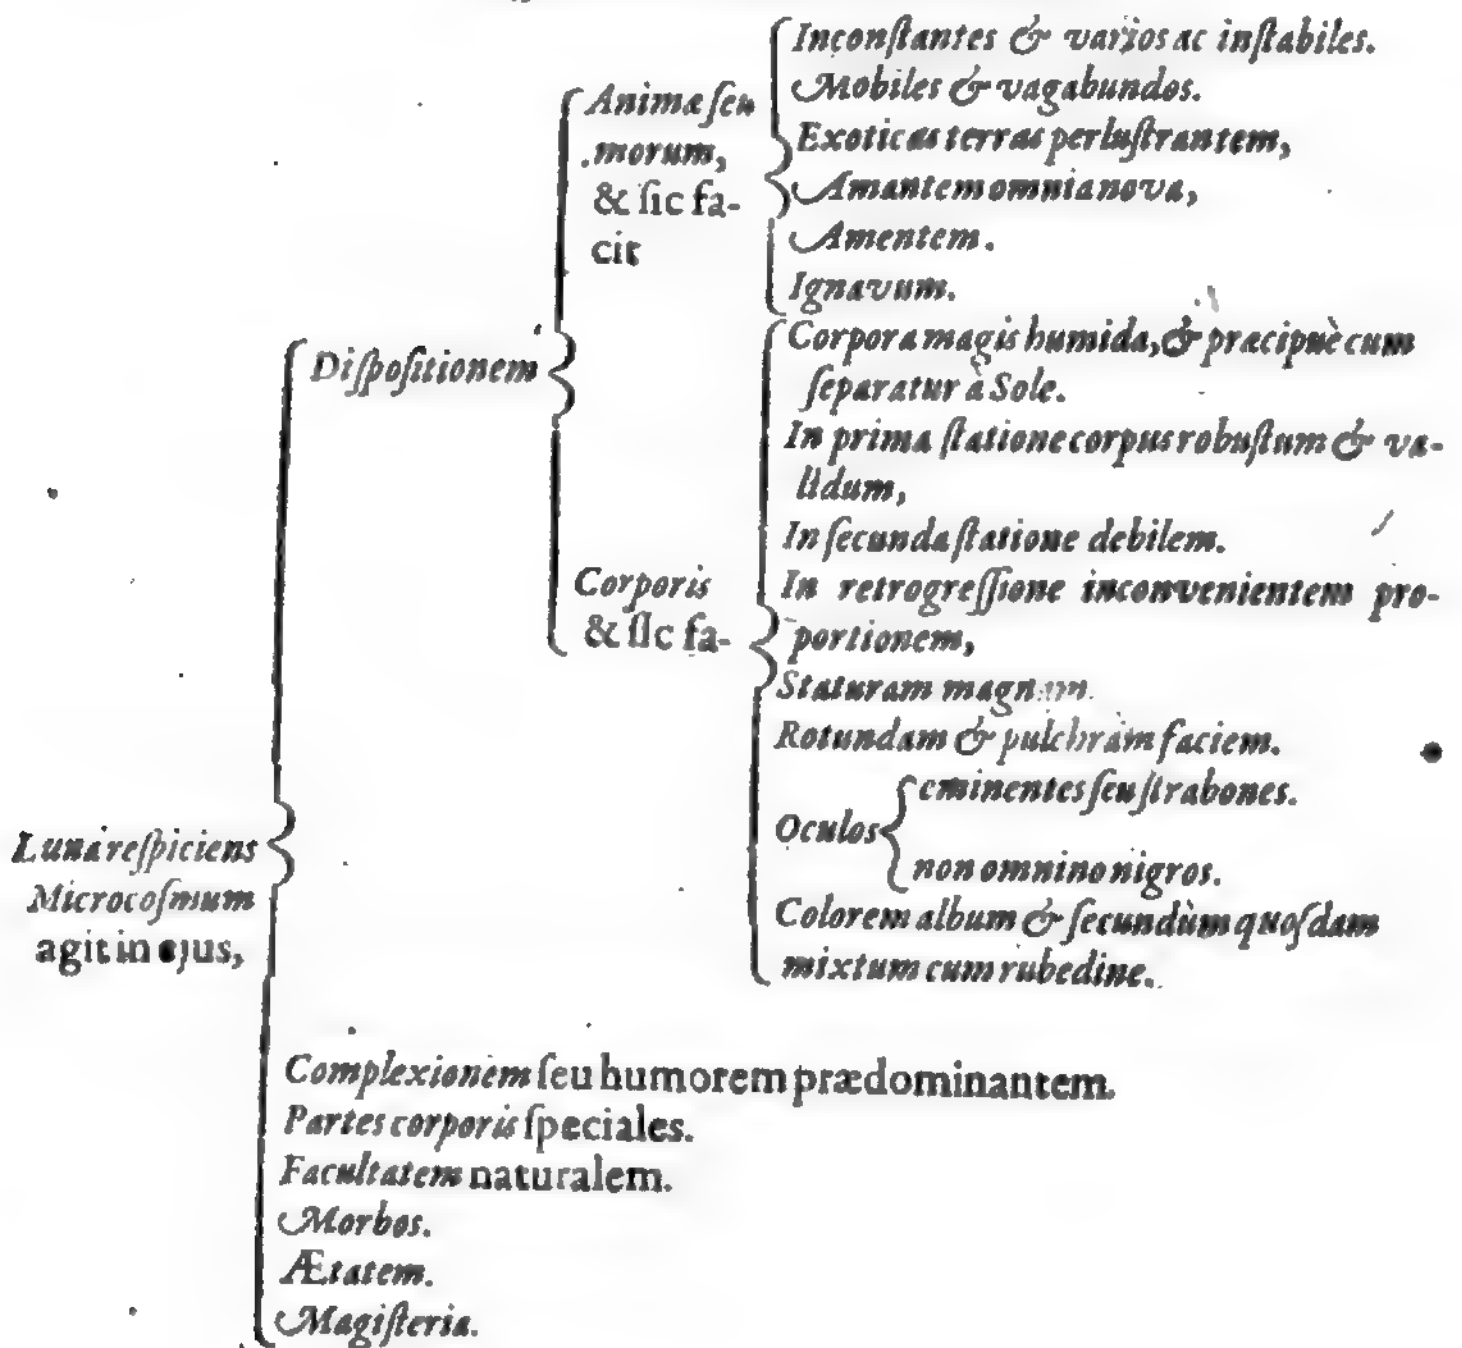 Luna respiciens
Microcosmum
agit in ejus,
Dispositionem
Animæ seu
morum,
& sic fa-
cit
Inconstantes & varios ac instabiles.
Mobiles & vagabundos.
Exoticas terras perlustrantem,
Amantem omnia nova,
Amentem.
Ignavum.
Corporis
& sic fa-
Corpora magis humida, & præcipuè cum
separatur à Sole.
In prima statione corpus robustum & va-
lidum,
In secunda statione debilem.
In retrogressione inconvenientem pro-
portionem,
Staturam magnam.
Rotundam & pulchram faciem.
Oculos
eminentes seu strabones.
non omnino nigros.
Colorem album & secundùm quosdam
mixtum cum rubedine.
Complexionem seu humorem prædominantem.
Partes corporis speciales.
Facultatem naturalem.
Morbos.
Ætatem.
Magisteria.